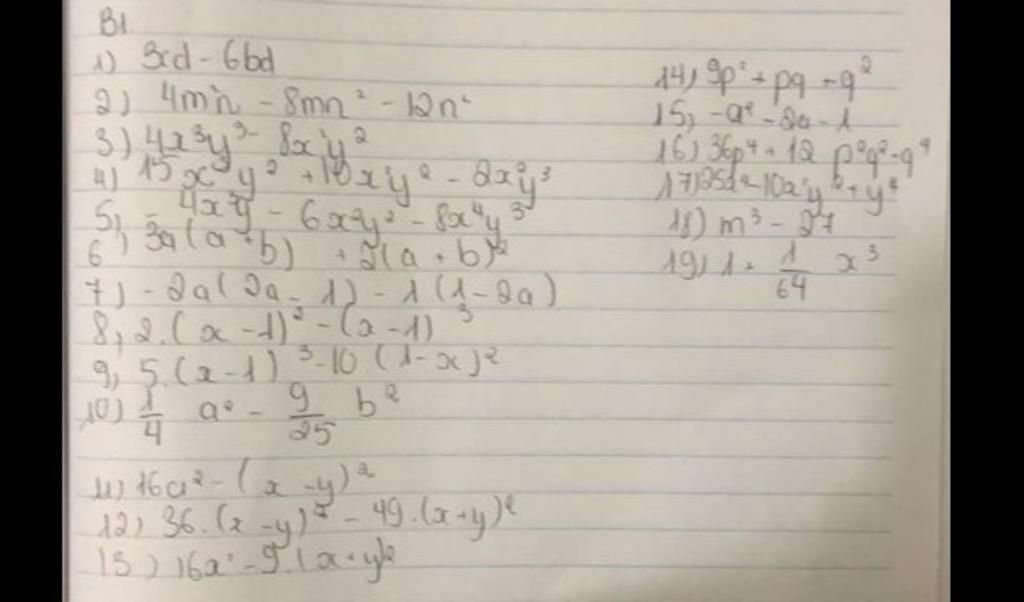 B1
1) 3xd - 6bd
2) 4m²n - 8mn² - 12n²
3) 4x³y³ - 8x²y²
4) 15x³y² + 10x²y² - 2x²y³
5, -4x³y - 6x²y² - 8x⁴y³
6, 3a(a+b) + 2(a+b)²
7) -2a(2a-1) - 1(1-2a)
8, 2.(x-1)² - (x-1)³
9, 5.(x-1)³ - 10.(1-x)²
10) 1/4 a² - 9/25 b²
11) 16a² - (x-y)²
12) 36.(x-y)² - 49.(x+y)²
13) 16x² - 9.(x+y)²
14) 9p² + pq - q²
15, -a² - 2a - 1
16) 36p⁴ + 12p²q² - q⁴
17) 25x² - 10x²y² + y⁴
18) m³ - 27
19) 1 + 1/64 x³